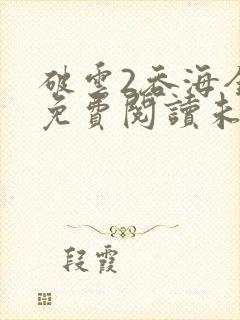 破雲2吞海全
免費閱讀未
段霞